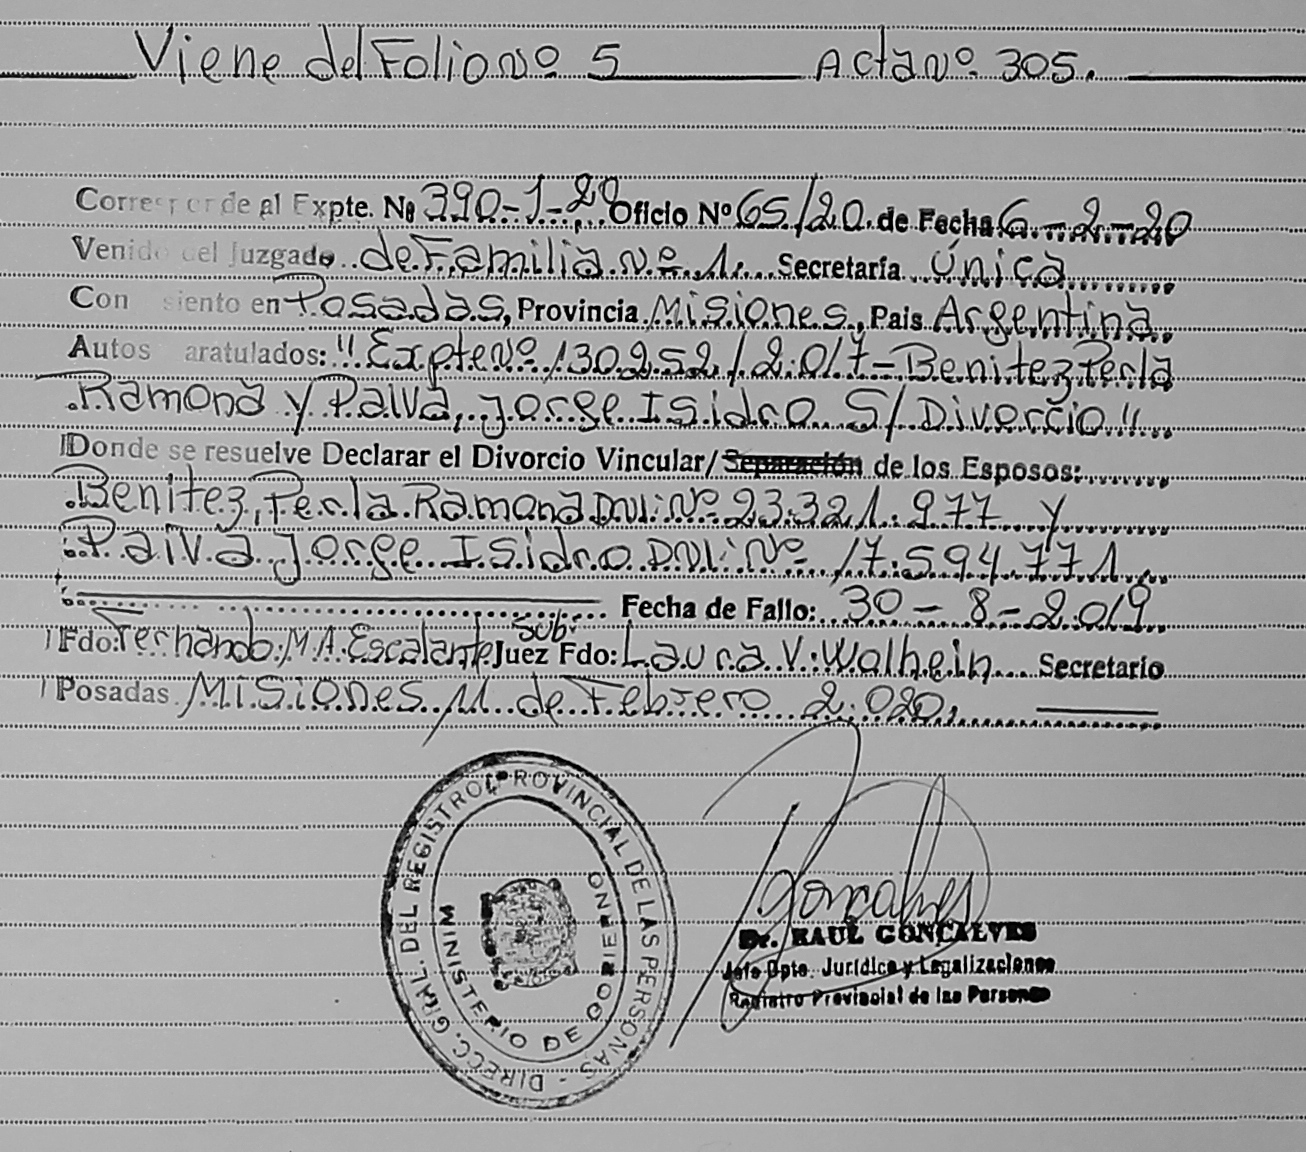 Viene del Folio Nº 5 Acta Nº 305.
Corresponde al Expte. Nº 390-1-20 Oficio Nº 65/20 de Fecha 6-2-20
Venido del Juzgado de Familia Nº 1. Secretaría Única
Con siento en Posadas, Provincia Misiones, Pais Argentina.
Autos aratulados: "Expte Nº 130252/2.017-Benitez Perla
Ramona y Paiva, Jorge Isidro S/Divorcio".
Donde se resuelve Declarar el Divorcio Vincular/Separación de los Esposos:
Benitez, Perla Ramona DNI: Nº 23.321.977 y
Paiva Jorge Isidro DNI: Nº 17.594.771.
Fecha de Fallo: 30-8-2.019
Fdo: Fernando M.A. Escalante Sub. Juez Fdo: Laura V. Walhein Secretario
Posadas Misiones 11 de Febrero 2.020.
DIRECC. GRAL. DEL REGISTRO PROVINCIAL DE LAS PERSONAS -
MINISTERIO DE GOBIERNO
Goncalves
Dr. RAUL GONCALVES
Jefe Dpto. Jurídico y Legalizaciones
Registro Provincial de las Personas